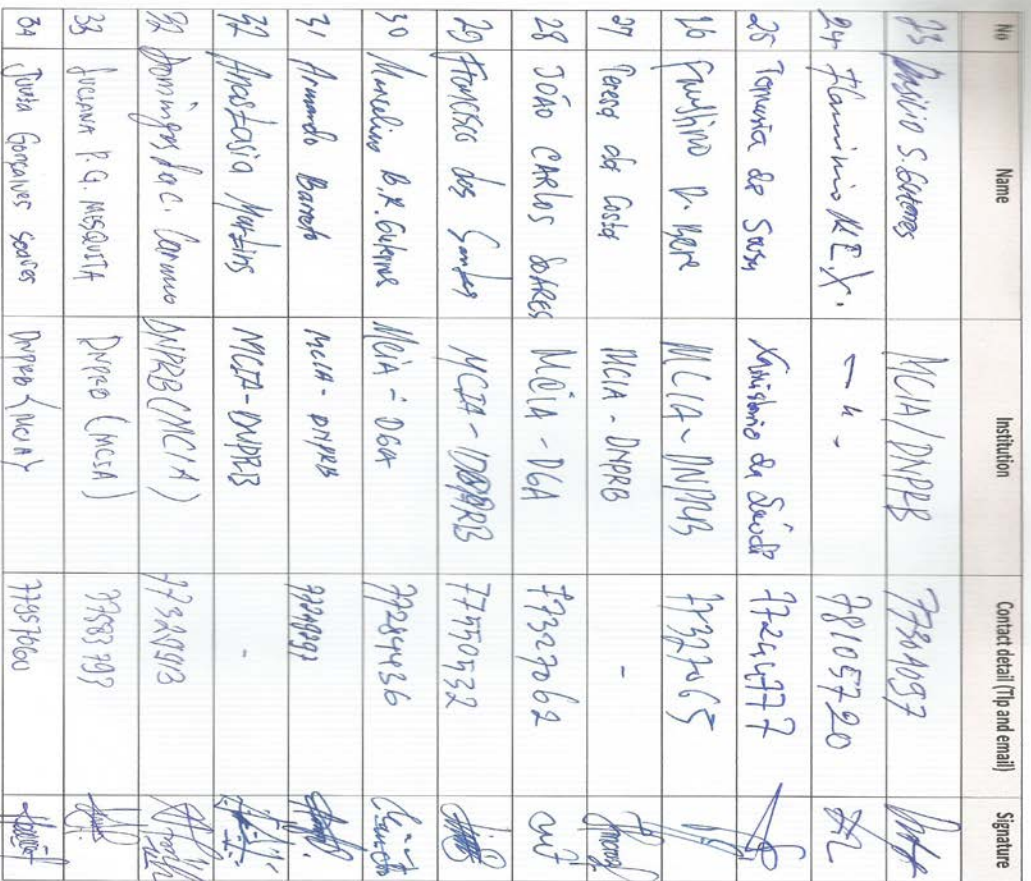 No Name Institution Contact detail (Tlp and email) Signature
23 S. Guterres MCIA/DNPRB
24 Flaminio M.E.X. - 11 - 78105720
25 de Sousa Ministerio da Saúde 77244777
26 Faustino D. MCIA - DNPRB 77327065
27 Teresa da Costa MCIA - DNPRB -
28 JOÃO CARLOS SOARES MCIA - DGA 77327062
29 Francisco dos Santos MCIA - DNPRB 77550532
30 B.R. Guterres MCIA - DGA 77284436
31 Armando Barreto MCIA - DNPRB
32 Anastasia Martins MCIA - DNPRB -
32 Domingos da C. Carmo DNPRB (MCIA)
33 LUCIANA P.G. MESQUITA DNPRB (MCIA) 77583793
34 Justa Gonçalves Soares DNPRB (MCIA)